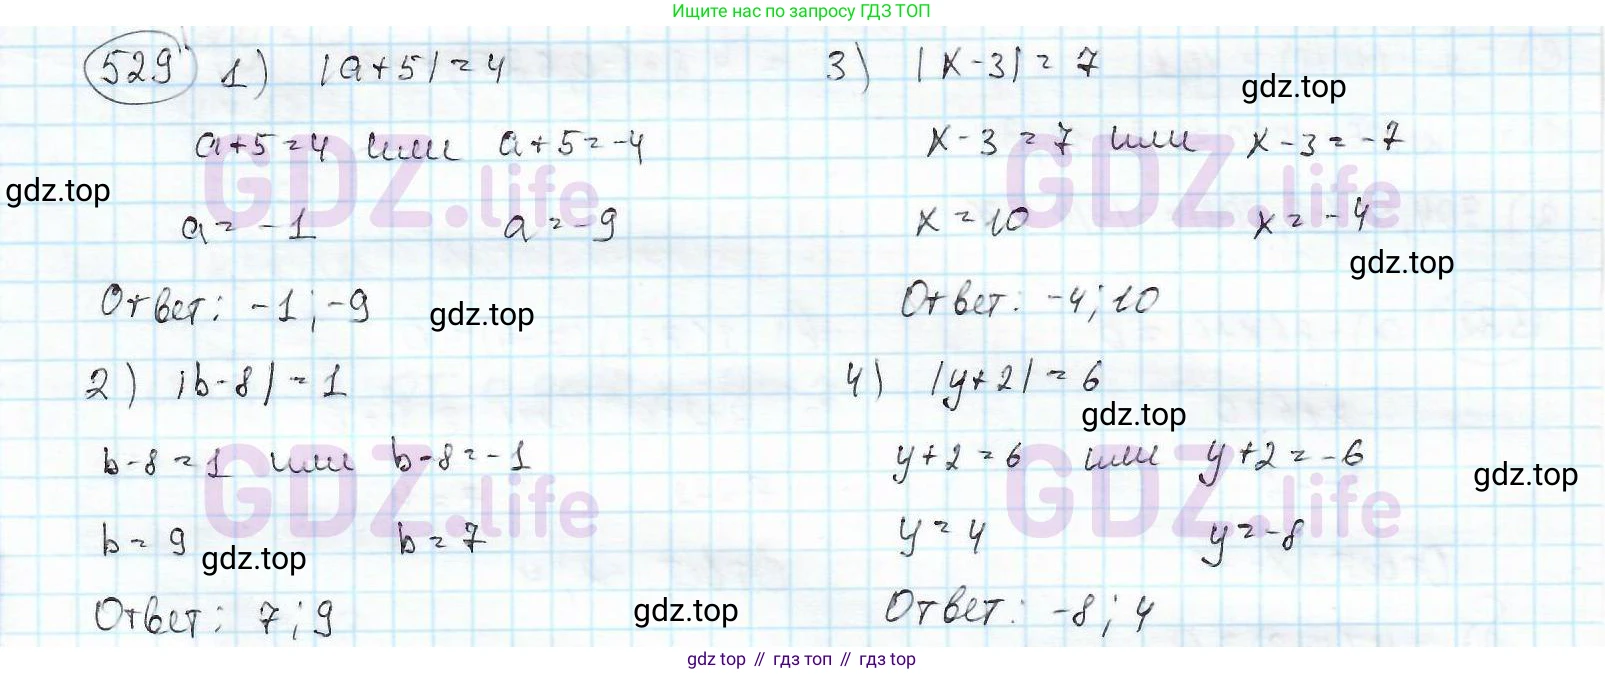 Ищите нас по запросу ГДЗ ТОП
529 1) |a+5|=4
a+5=4 или a+5=-4
gdz.top
GDZ.life
a=-1 a=-9
Ответ: -1; -9
gdz.top
2) |b-8|=1
b-8=1 или b-8=-1
GDZ.life
b=9 b=7
gdz.top
Ответ: 7; 9
gdz.top
3) |x-3|=7
gdz.top
x-3=7 или x-3=-7
GDZ.life
x=10 x=-4
gdz.top
Ответ: -4; 10
4) |y+2|=6
gdz.top
y+2=6 или y+2=-6
gdz.top
GDZ.life
y=4 y=-8
Ответ: -8; 4
gdz top // гдз топ // gdz top